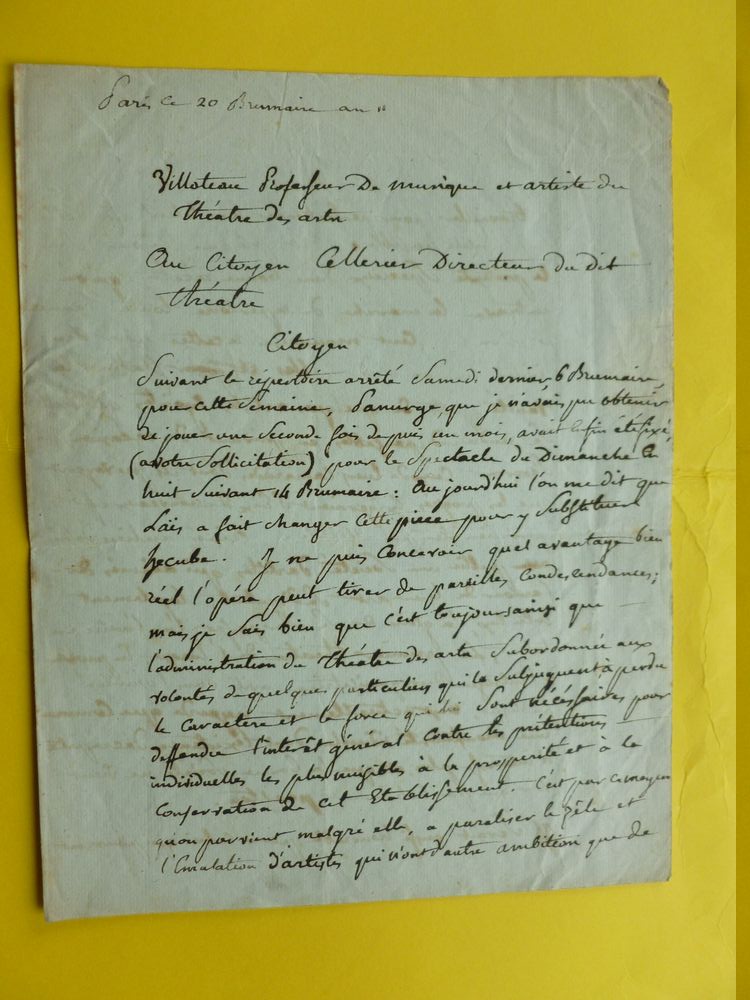 Paris ce 20 Brumaire an 11
Villoteau Professeur De musique et artiste du
Théatre des arts
Au Citoyen Cellerier Directeur du dit
théatre
Citoyen
Suivant le répertoire arrêté Samedi dernier, 6 Brumaire,
pour cette Semaine, Panurge, que je n'avais pu obtenir
de jouer une Seconde fois depuis un mois, avait enfin été fixé,
(a votre Sollicitation) pour le Spectacle du Dimanche en
huit Suivant 14 Brumaire: Aujourd'hui l'on me dit que
Laïs a fait changer cette piece pour y Substituer
hecube. Je ne puis Concevoir quel avantage bien
réel l'opéra peut tirer de pareilles condescendances;
mais je Sais bien que c'est toujours ainsi que
l'administration du Théatre des arts Subordonnée aux
volontés de quelques particuliers qui la Subjuguent, à perdu
le Caractere et la force qui lui Sont nécéssaires pour
deffendre l'interêt général Contre les prétentions
individuelles les plus nuisibles à la prosperité et à la
Conservation de cet Etablissement. C'est par ce moyen
qu'on parvient malgré elle, a paraliser le Zêle et
l'Emulation d'artistes qui n'ont d'autre ambition que de